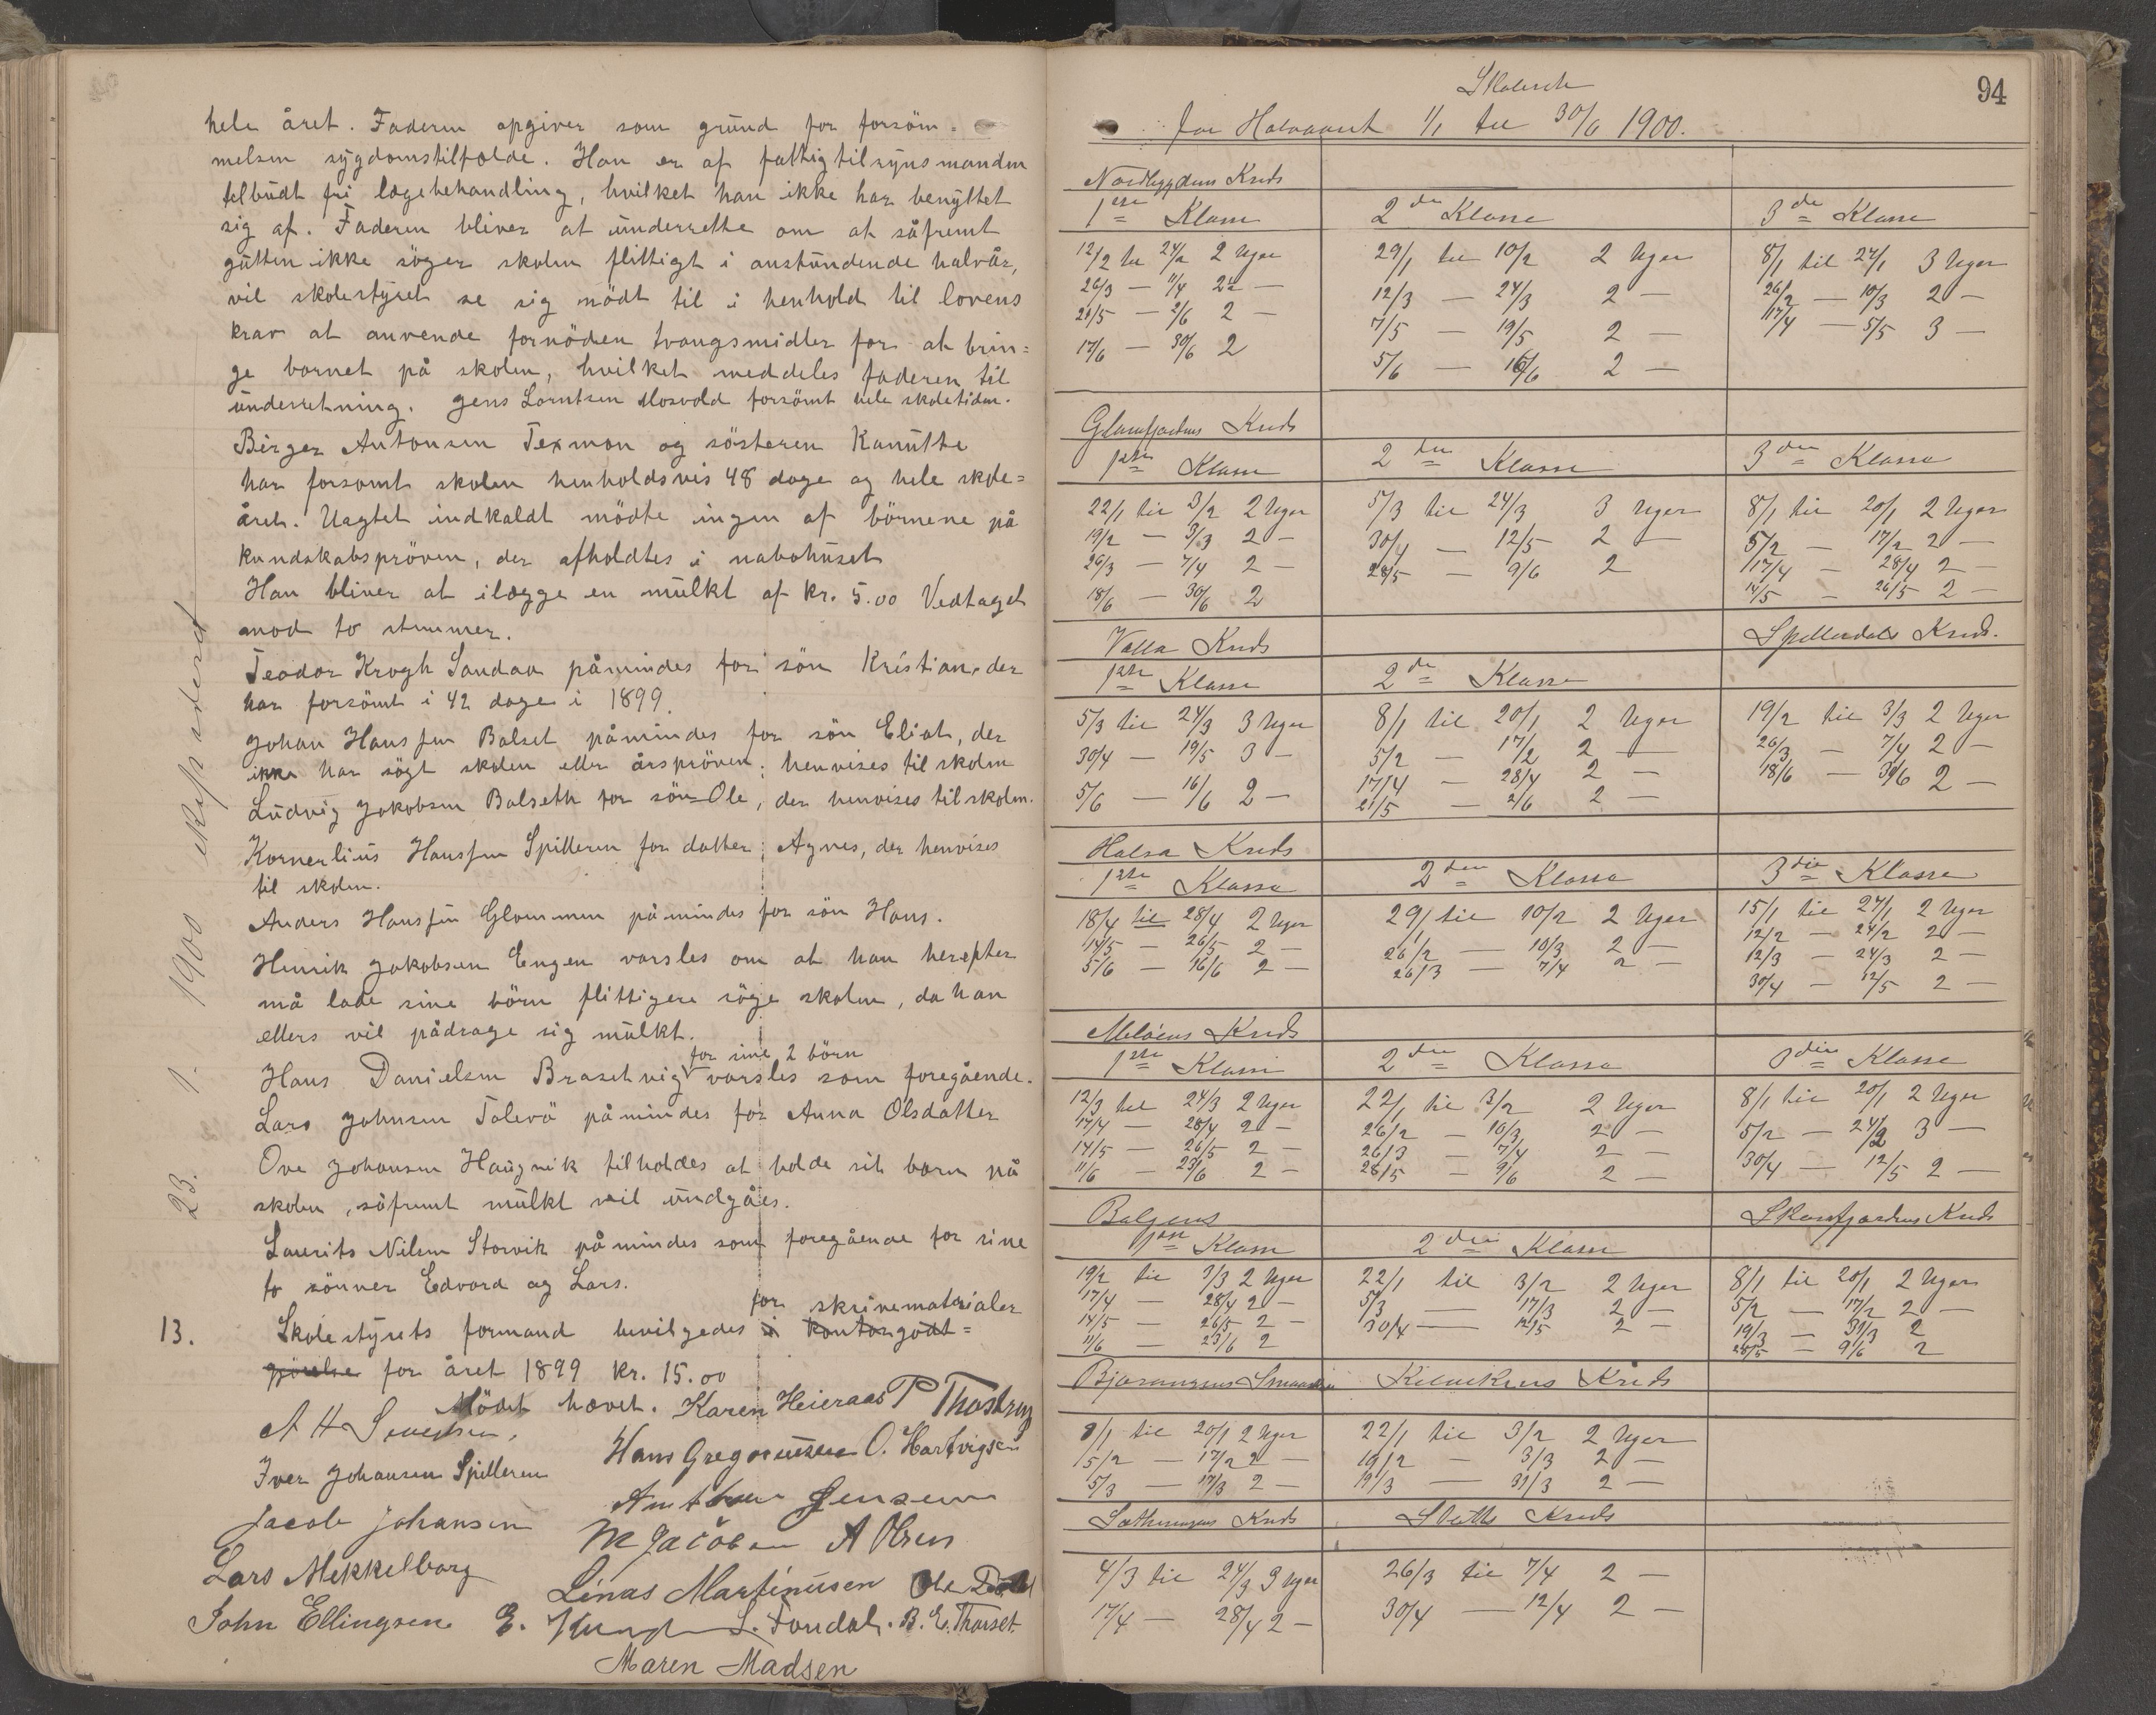 hele året. Faderen opgiver som grund for forsöm=
melsen sygdomstilfælde. Han er af fattigtilsynsmanden
tilbudt fri lægebehandling, hvilket han ikke har benyttet
sig af. Faderen bliver at underrette om at såfremt
gutten ikke söger skolen flittigt i anstundende halvår,
vil skolestyret se sig nödt til i henhold til lovens
krav at anvende fornöden tvangsmidler for at brin=
ge barnet på skolen, hvilket meddeles faderen til
underretning. Jens Lorntsen Mosvold forsömt hele skoletiden.
Birger Antonsen Texmon og sösteren Kanutte
har forsomt skolen henholdsvis 48 dage og hele skole=
året. Uagtet indkaldt mödte ingen af börnene på
kundskabspröven, der afholdtes i nabohuset
Han bliver at ilægge en mulkt af kr. 5.00 Vedtaget
mod to stemmer.
Teodor Krogh Sandaa påmindes for sön Kristian, der
har forsömt i 42 dage i 1899.
Johan Hansen Balset påmindes for sön Eliot, der
ikke har sögt skolen eller årspröven; henvises til skolen
Ludvig Jakobsen Balseth for sön Ole, der henvises til skolen.
Kornerlius Hansen Spilleren for datter, Agnes, der henvises
til skolen.
Anders Hansen Glommen påmindes for sön Hans.
Henrik Jakobsen Engen varsles om at han herefter
må lade sine börn flittigere söge skolen, da han
ellers vil pådrage sig mulkt.
for sine 2 börn
Hans Danielsen Brasetvig varsles som foregående.
Lars Johnsen Tolevö påmindes for Anna Olsdatter
Ove Johansen Haugvik tilholdes at holde sit barn på
skolen, såfremt mulkt vil undgåes.
Laurits Nilsen Storvik påmindes som foregående for sine
to sönner Edvard og Lars.
for skrivematerialer
13. Skolestyrets formand bevilgedes i kontorgodt=
görelse for året 1899 kr. 15.00
Mödet hævet. Karen Heieraas P Thostrup
A H Sivertsen,
Hans Gregoriussen O. Hartvigsen
Iver Johansen Spilleren
Anton Jensen
Jacob Johansen
M Jacobsen A Olsen
Lars Mekkelborg
Linas Martinusen Ole
John Ellingsen E. L. Fondal. B. E. Thorset.
Maren Madsen
23. 1. 1900 ekspederet
94
Skolerute
for Halvaaret 1/1 til 30/6 1900.
Nordbygdens Kreds
1ste Klasse 2den Klasse 3die Klasse
12/2 til 24/2 2 Uger 29/1 til 10/2 2 Uger 8/1 til 27/1 3 Uger
26/3 — 11/4 2 — 12/3 — 24/3 2 — 26/2 — 10/3 2 —
21/5 — 2/6 2 — 7/5 — 19/5 2 — 17/4 — 5/5 3 —
17/6 — 30/6 2 5/6 — 16/6 2 —
Glomfjordens Kreds
1ste Klasse 2den Klasse 3die Klasse
22/1 til 3/2 2 Uger 5/3 til 24/3 3 Uger 8/1 til 20/1 2 Uger
19/2 — 3/3 2 — 30/4 — 12/5 2 — 5/2 — 17/2 2 —
26/3 — 7/4 2 — 28/5 — 9/6 2 17/4 — 28/4 2 —
18/6 — 30/6 2 14/5 — 26/5 2 —
Valla Kreds Spilderdals Kreds.
1ste Klasse 2de Klasse
5/3 til 24/3 3 Uger 8/1 til 20/1 2 Uger 19/2 til 3/3 2 Uger
30/4 — 19/5 3 — 5/2 — 17/2 2 — 26/3 — 7/4 2 —
5/6 — 16/6 2 — 17/4 — 28/4 2 — 18/6 — 30/6 2 —
21/5 — 2/6 2 —
Halsa Kreds
1ste Klasse 2den Klasse 3die Klasse
18/4 til 28/4 2 Uger 29/1 til 10/2 2 Uger 15/1 til 27/1 2 Uger
14/5 — 26/5 2 — 26/2 — 10/3 2 — 12/2 — 24/2 2 —
5/6 — 16/6 2 — 26/3 — 7/4 2 — 12/3 — 24/3 2 —
30/4 — 12/5 2 —
Melöens Kreds
1ste Klasse 2den Klasse 3die Klasse
12/3 til 24/3 2 Uger 22/1 til 3/2 2 Uger 8/1 til 20/1 2 Uger
17/4 — 28/4 2 — 26/2 — 10/3 2 — 5/2 — 24/2 3 —
14/5 — 26/5 2 — 26/3 — 7/4 2 — 30/4 — 12/5 2 —
11/6 — 23/6 2 — 28/5 — 9/6 2 —
Bolgens Skarsfjordens Kreds
1ste Klasse 2den Klasse
19/2 til 3/3 2 Uger 22/1 til 3/2 2 Uger 8/1 til 20/1 2 Uger
17/4 — 28/4 2 — 5/3 — 17/3 2 — 5/2 — 17/2 2 —
14/5 — 26/5 2 — 30/4 — 12/5 2 — 19/3 — 31/3 2
11/6 — 23/6 2 28/5 — 9/6 2
Bjærangens Kilvikens Kreds
8/1 til 20/1 2 Uger 22/1 til 3/2 2 Uger
5/2 — 17/2 2 — 19/2 — 3/3 2 —
5/3 — 17/3 2 — 19/3 — 31/3 2 —
Sætherengens Kreds Stötts Kreds
4/3 til 24/3 3 Uger 26/3 til 7/4 2 —
17/4 — 28/4 2 — 30/4 — 12/4 2 —